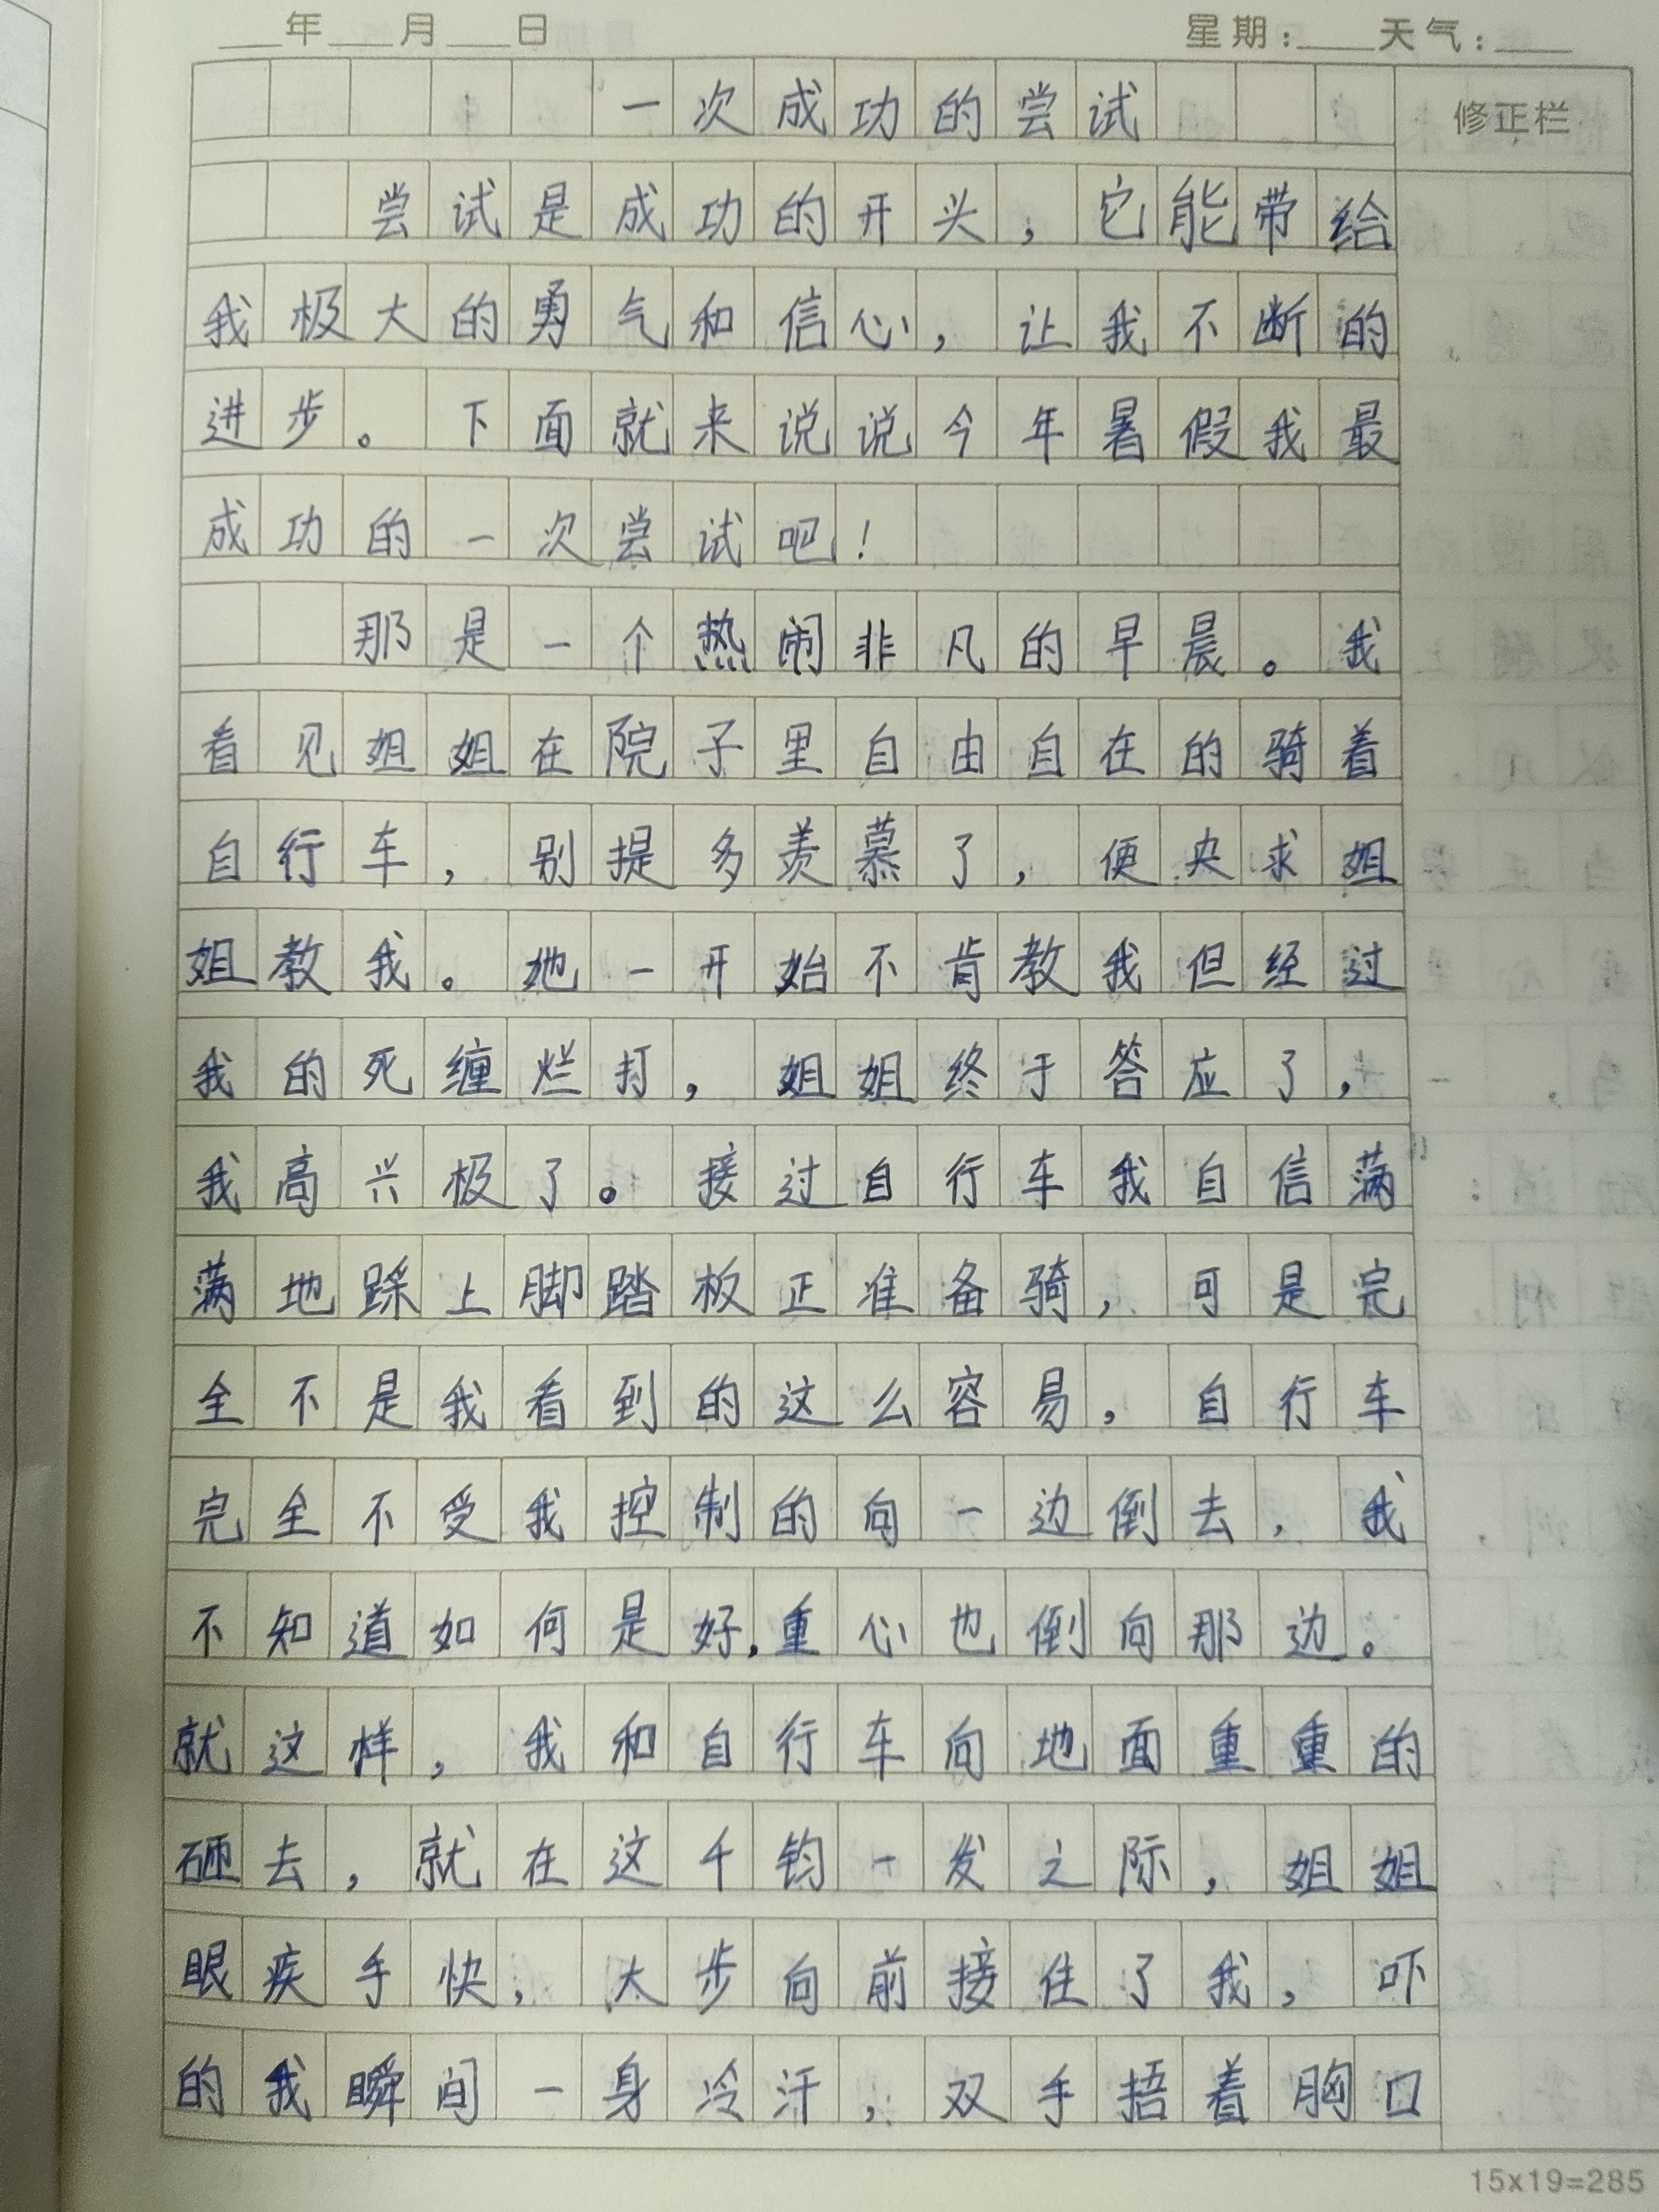 ___年___月___日 星期:____天气:____
一次成功的尝试
修正栏
尝试是成功的开头，它能带给
我极大的勇气和信心，让我不断的
进步。下面就来说说今年暑假我最
成功的一次尝试吧！
那是一个热闹非凡的早晨。我
看见姐姐在院子里自由自在的骑着
自行车，别提多羡慕了，便央求姐
姐教我。她一开始不肯教我但经过
我的死缠烂打，姐姐终于答应了，
我高兴极了。接过自行车我自信满
满地踩上脚踏板正准备骑，可是完
全不是我看到的这么容易，自行车
完全不受我控制的向一边倒去，我
不知道如何是好，重心也倒向那边。
就这样，我和自行车向地面重重的
砸去，就在这千钧一发之际，姐姐
眼疾手快，大步向前接住了我，吓
的我瞬间一身冷汗，双手捂着胸口
15x19=285